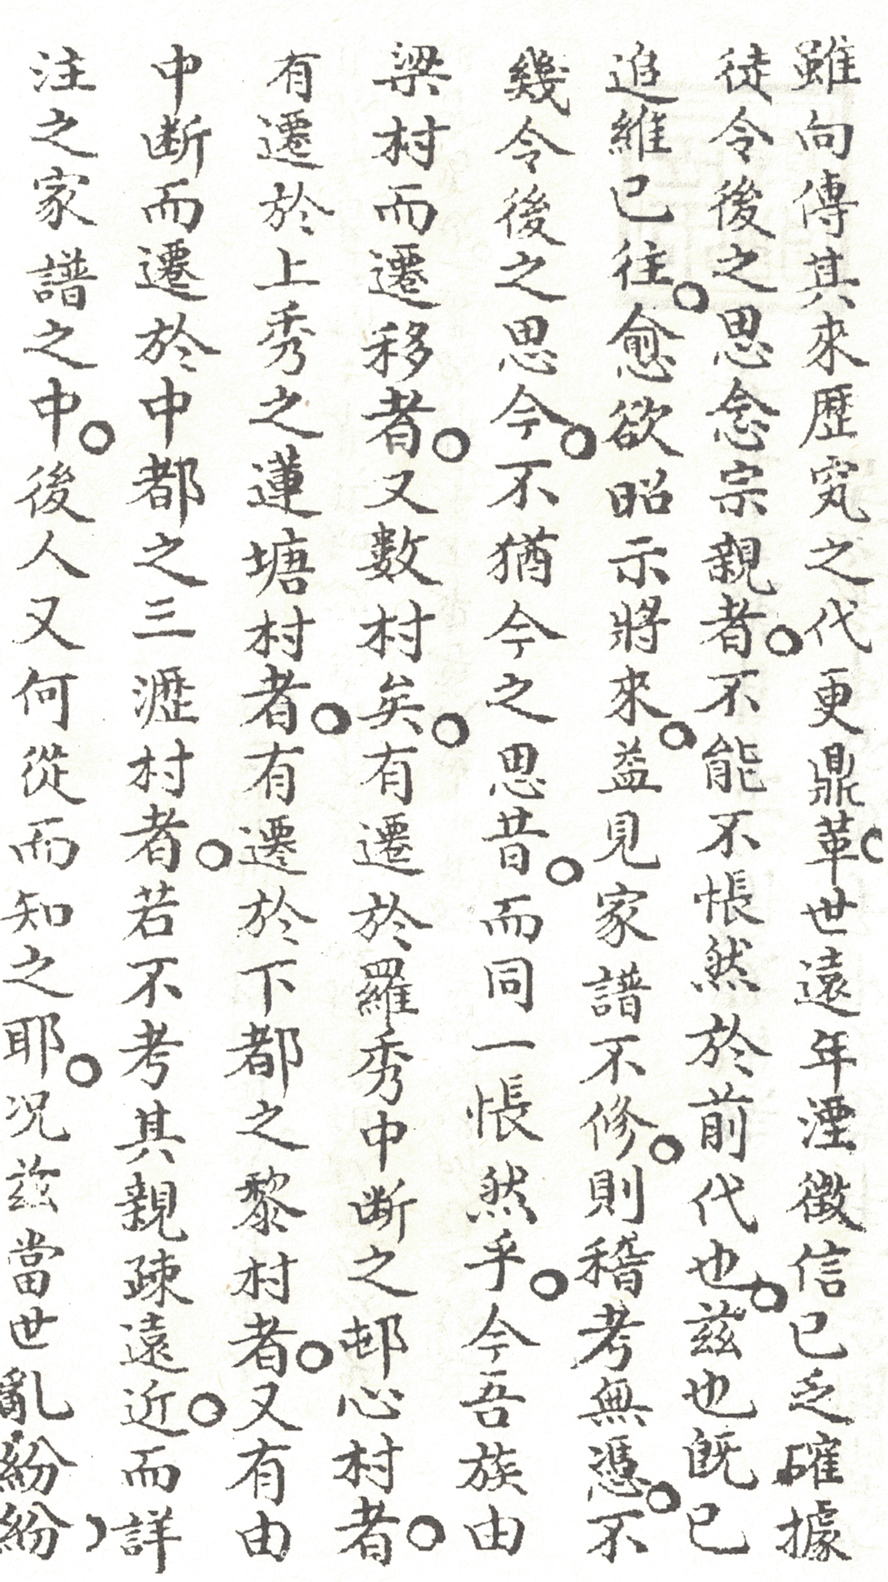 雖向傳其來歷究之代更鼎革世遠年湮徵信已乏確據
徒令後之思念宗親者不能不悵然於前代也兹也既已
追維已往愈欲昭示將來益見家譜不修則稽考無憑不
幾令後之思今不猶今之思昔而同一悵然乎今吾族由
梁村而遷移者又數村矣有遷於羅秀中断之邨心村者
有遷於上秀之蓮塘村者有遷於下都之黎村者又有由
中断而遷於中都之三瀝村者若不考其親疎遠近而詳
注之家譜之中後人又何從而知之耶况兹當世亂紛紛